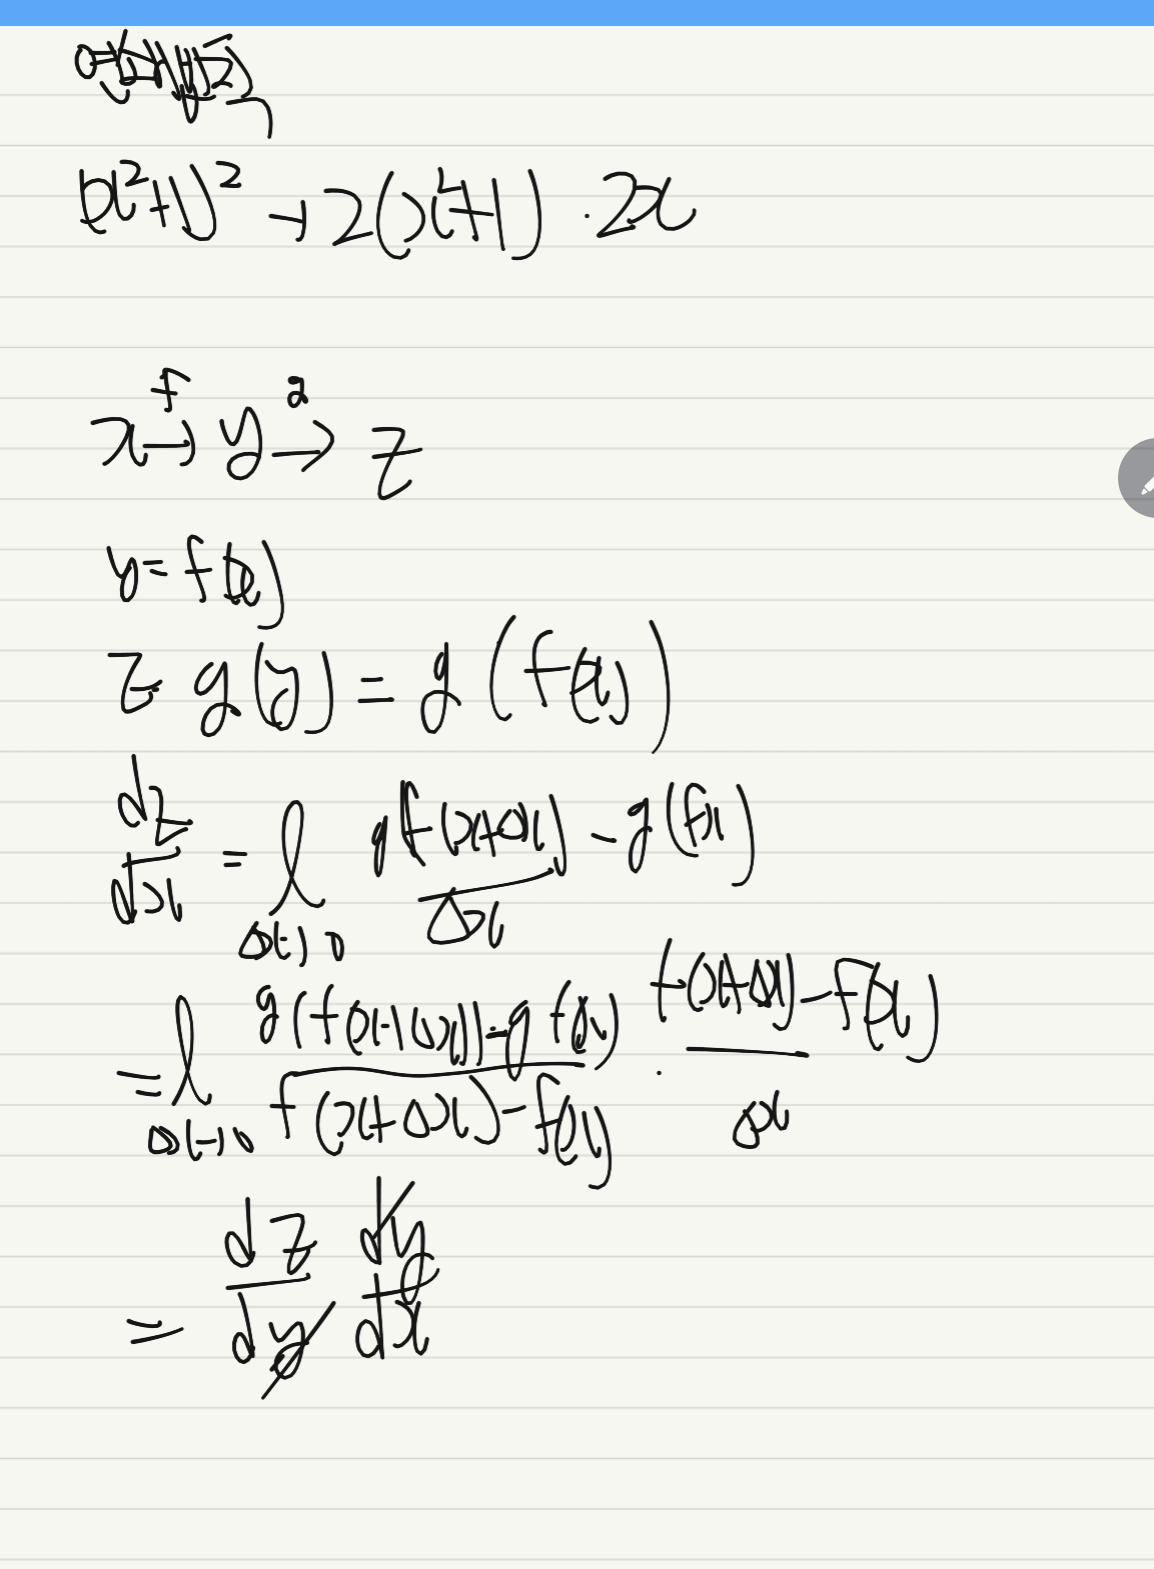 (x²+1)² → 2(x²+1) · 2x
x →f y →g z
y = f(x)
z g(y) = g(f(x))
dz/dx = l Δx→0 gf(x+Δx) - g(f(x)) / Δx
= l Δx→0 g(f(x+Δx)) - g f(x) / f(x+Δx) - f(x) · f(x+Δx) - f(x) / Δx
= dz/dy dy/dx